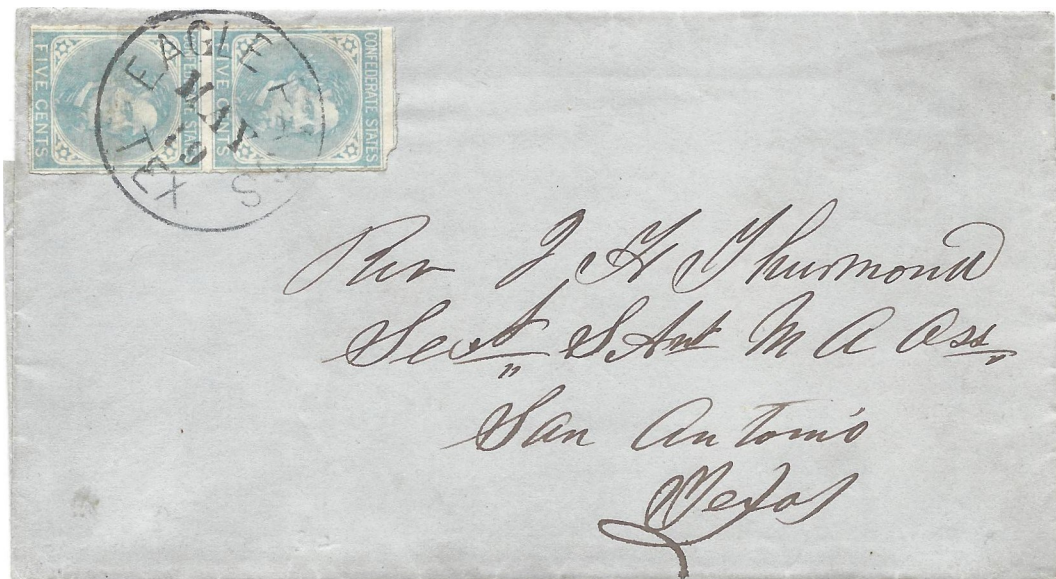 FIVE CENTS
CONFEDERATE STATES
FIVE CENTS
CONFEDERATE STATES
EAGLE PASS TEX
MAY
19
Rev J H Thurmond
Sect S Ant M A Ass
San Antonio
Texas